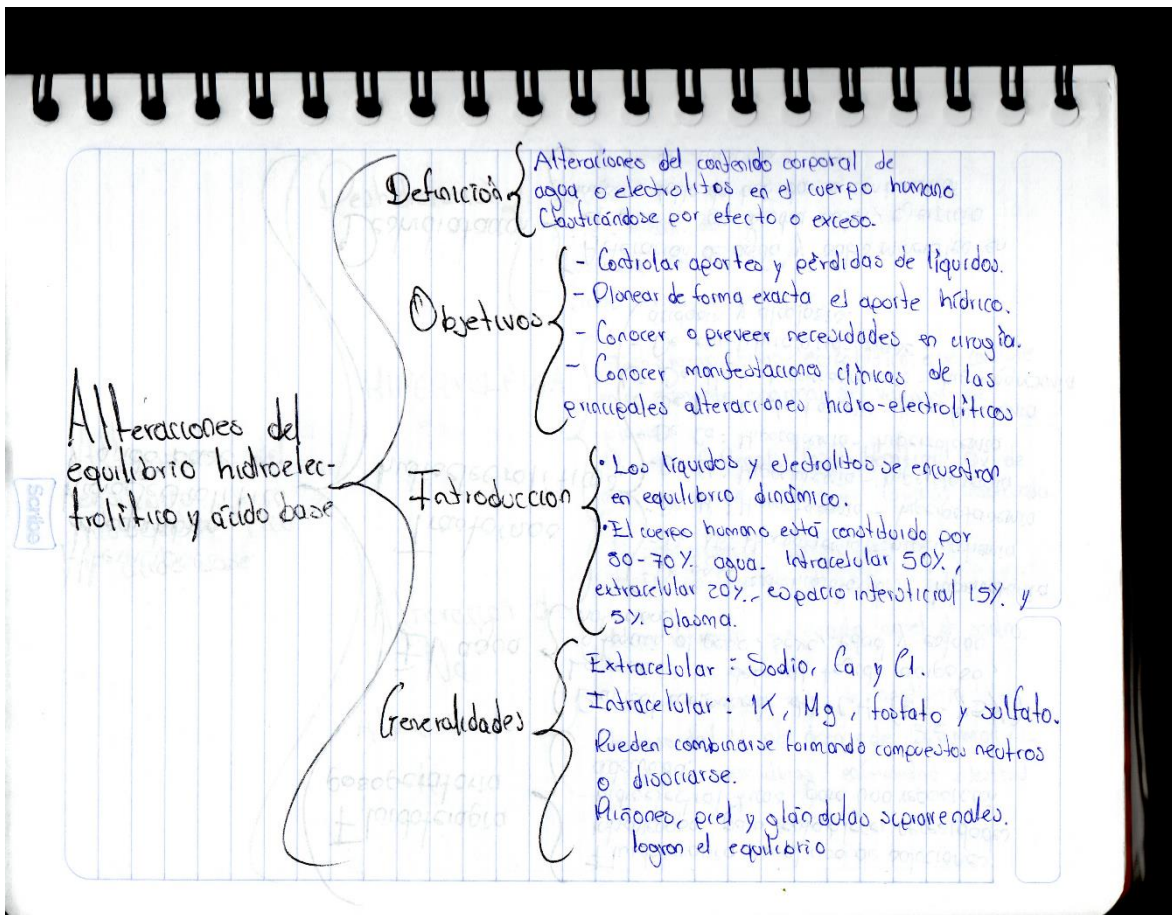 Alteraciones del
equilibrio hidroelec-
trolítico y ácido base
Definición
Alteraciones del contenido corporal de
agua o electrolitos en el cuerpo humano
Clasificándose por efecto o exceso.
Objetivos
- Controlar aportes y pérdidas de líquidos.
- Planear de forma exacta el aporte hídrico.
- Conocer o preveer necesidades en cirugía.
- Conocer manifestaciones clínicas de las
principales alteracciones hidro-electrolíticos
Introduccion
• Los líquidos y electrolitos se encuentran
en equilibrio dinámico.
• El cuerpo humano está constituido por
50-70% agua. Intracelular 50%,
extracelular 20%, espacio intersticial 15% y
5% plasma.
Generalidades
Extracelular: Sodio, Ca y Cl.
Intracelular: K, Mg, fosfato y sulfato.
Pueden combinarse formando compuestos neutros
o disociarse.
Riñones, piel y glándulas suprarrenales.
logran el equilibrio
Scribe